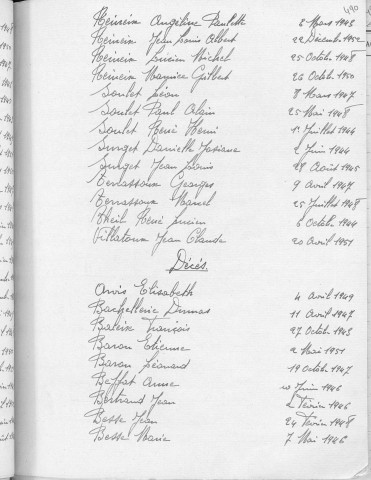 490
Meinein Angéline Paulette 8 Mars 1943
Meinein Jean Louis Albert 22 Décembre 1952
Meinein Lucien Michel 25 Octobre 1948
Meinein Maurice Gilbert 26 Octobre 1950
Soulet Léon 8 Mars 1947
Soulet Paul Alain 25 Mai 1948
Soulet René Henri 17 Juillet 1944
Surget Danielle Josiane 2 Juin 1944
Surget Jean Louis 28 Août 1945
Terrassoux Georges 9 Avril 1947
Terrassoux Marcel 25 Juillet 1948
Theil René Lucien 6 Octobre 1944
Villatoux Jean Claude 20 Avril 1951
Décés.
Arvis Elisabeth 4 Avril 1949
Bachellerie Dumas 11 Avril 1947
Baleix François 27 Octobre 1943
Baron Etienne 2 Mai 1951
Baron Léonard 19 Octobre 1947
Beffat Anne 10 Juin 1946
Bertrand Jean 2 Février 1946
Besse Jean 24 Février 1948
Besse Marie 7 Mai 1946